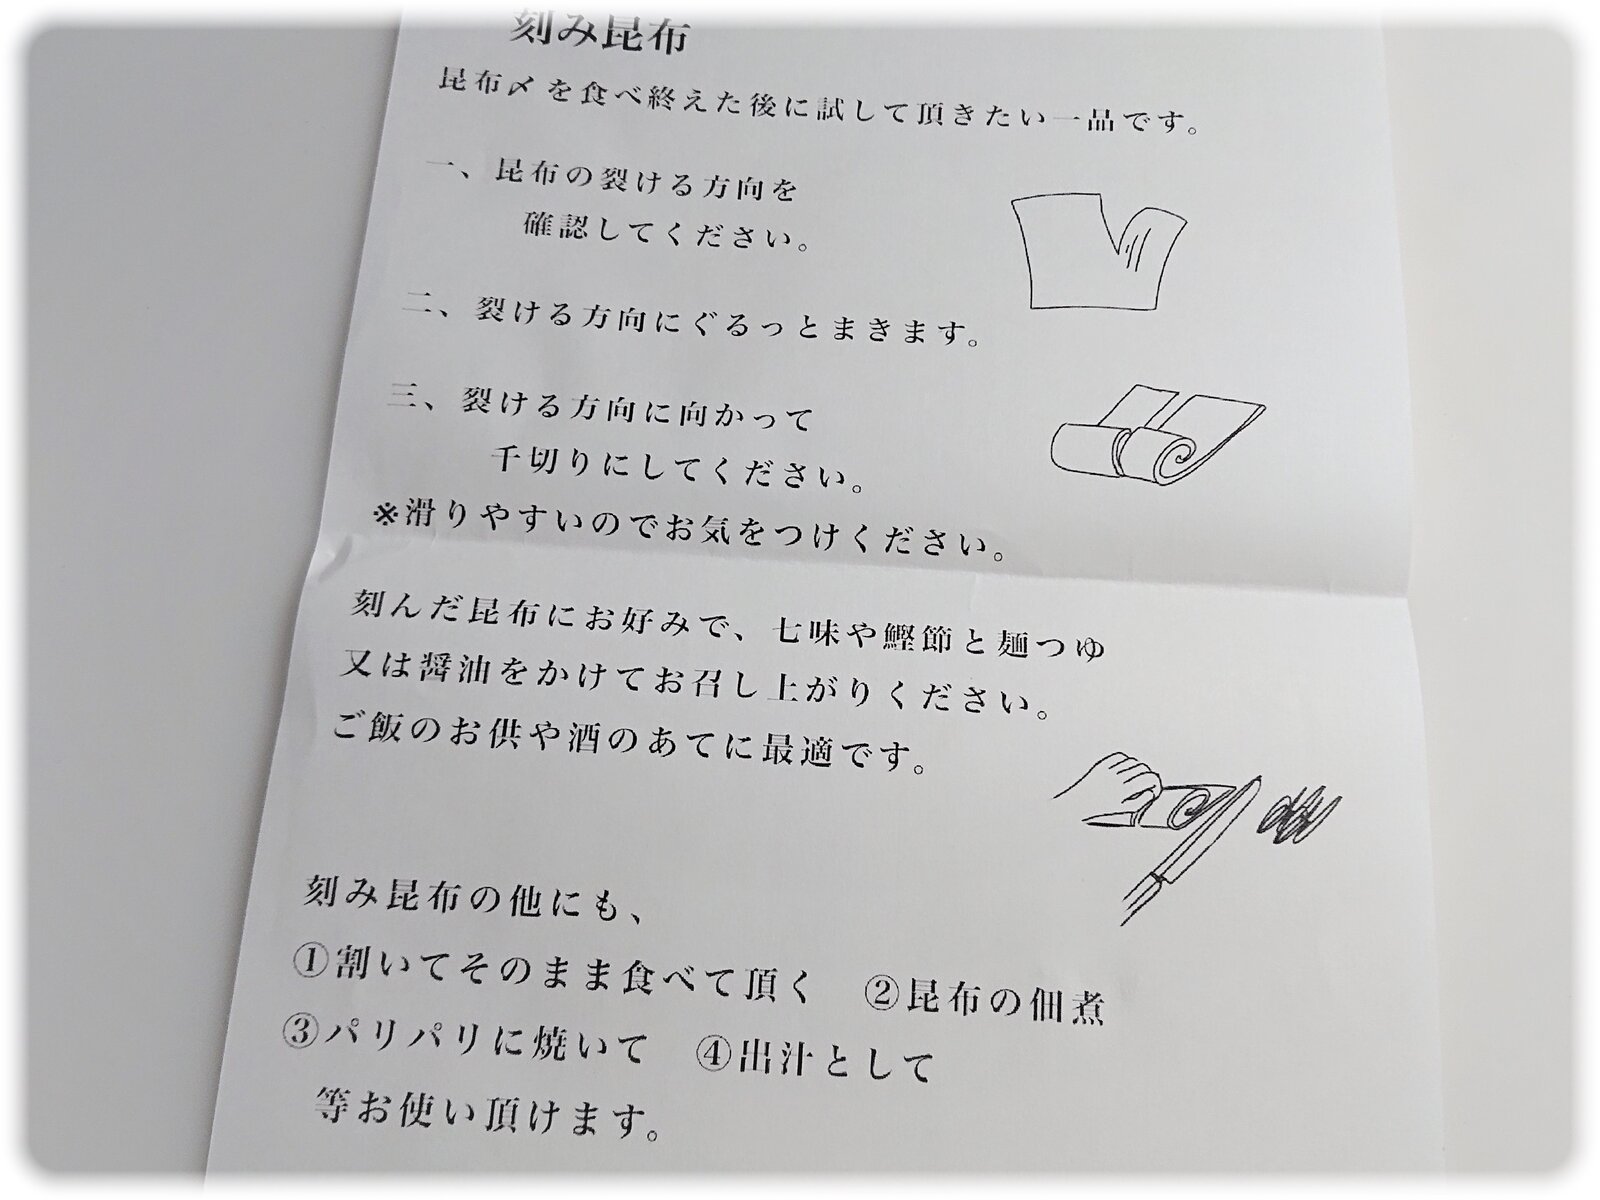 刻み昆布
昆布〆を食べ終えた後に試して頂きたい一品です。
一、昆布の裂ける方向を
確認してください。
二、裂ける方向にぐるっとまきます。
三、裂ける方向に向かって
千切りにしてください。
※滑りやすいのでお気をつけください。
刻んだ昆布にお好みで、七味や鰹節と麺つゆ
又は醤油をかけてお召し上がりください。
ご飯のお供や酒のあてに最適です。
刻み昆布の他にも、
①割いてそのまま食べて頂く ②昆布の佃煮
③パリパリに焼いて ④出汁として
等お使い頂けます。